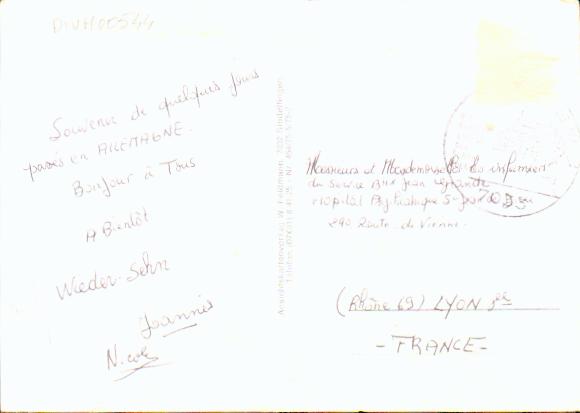 DIVH00544
Souvenir de quelques jours
passés en ALLEMAGNE.
Bonjour à Tous
A Bientôt
Wieder-Sehn
Joannès
Nicole
Ansichtskartenverlag W. Feldmann, 7032 Sindelfingen
Messieurs et Mesdemoiselles les infirmiers
du Service
Hôpital Psychiatrique St Jean de Dieu
290 Route de Vienne.
(Rhône 69) LYON
- FRANCE -